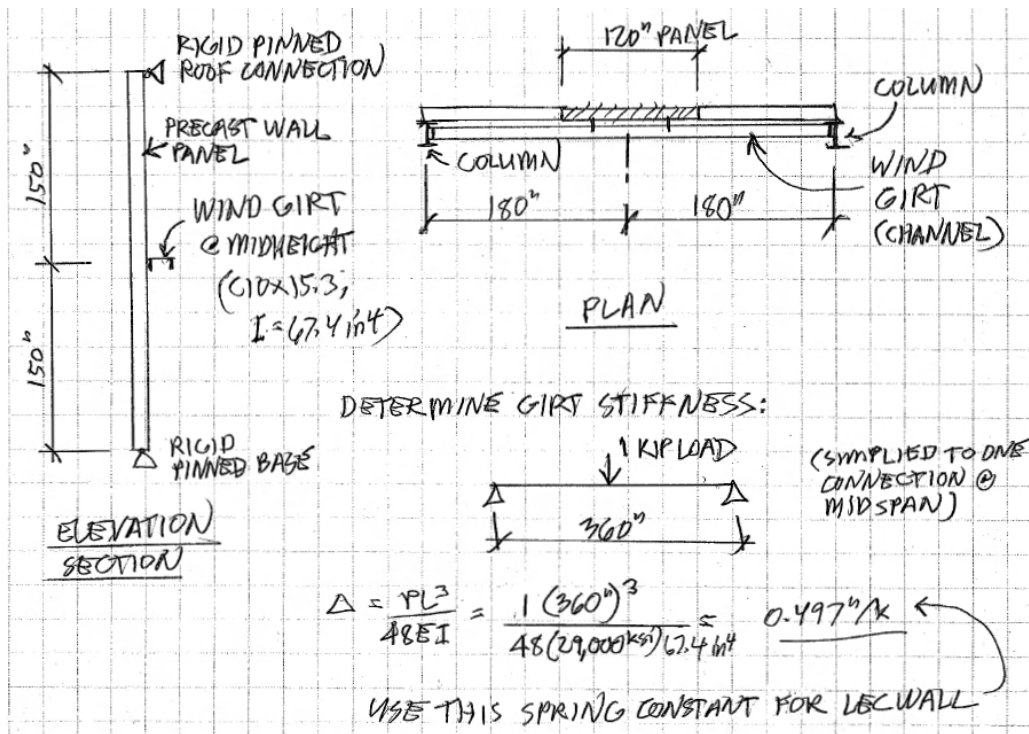 RIGID PINNED
ROOF CONNECTION
PRECAST WALL
PANEL
150"
WIND GIRT
@ MIDHEIGHT
(C10X15.3,
I=67.4 in4)
150"
RIGID
PINNED BASE
ELEVATION
SECTION
120" PANEL
COLUMN
COLUMN
WIND
GIRT
(CHANNEL)
180"
180"
PLAN
DETERMINE GIRT STIFFNESS:
1 KIP LOAD
(SIMPLIED TO ONE
CONNECTION @
MIDSPAN)
360"
Δ = PL3 / 48EI = 1(360")3 / 48(29,000ksi)67.4in4 = 0.497"/k
USE THIS SPRING CONSTANT FOR LECWALL